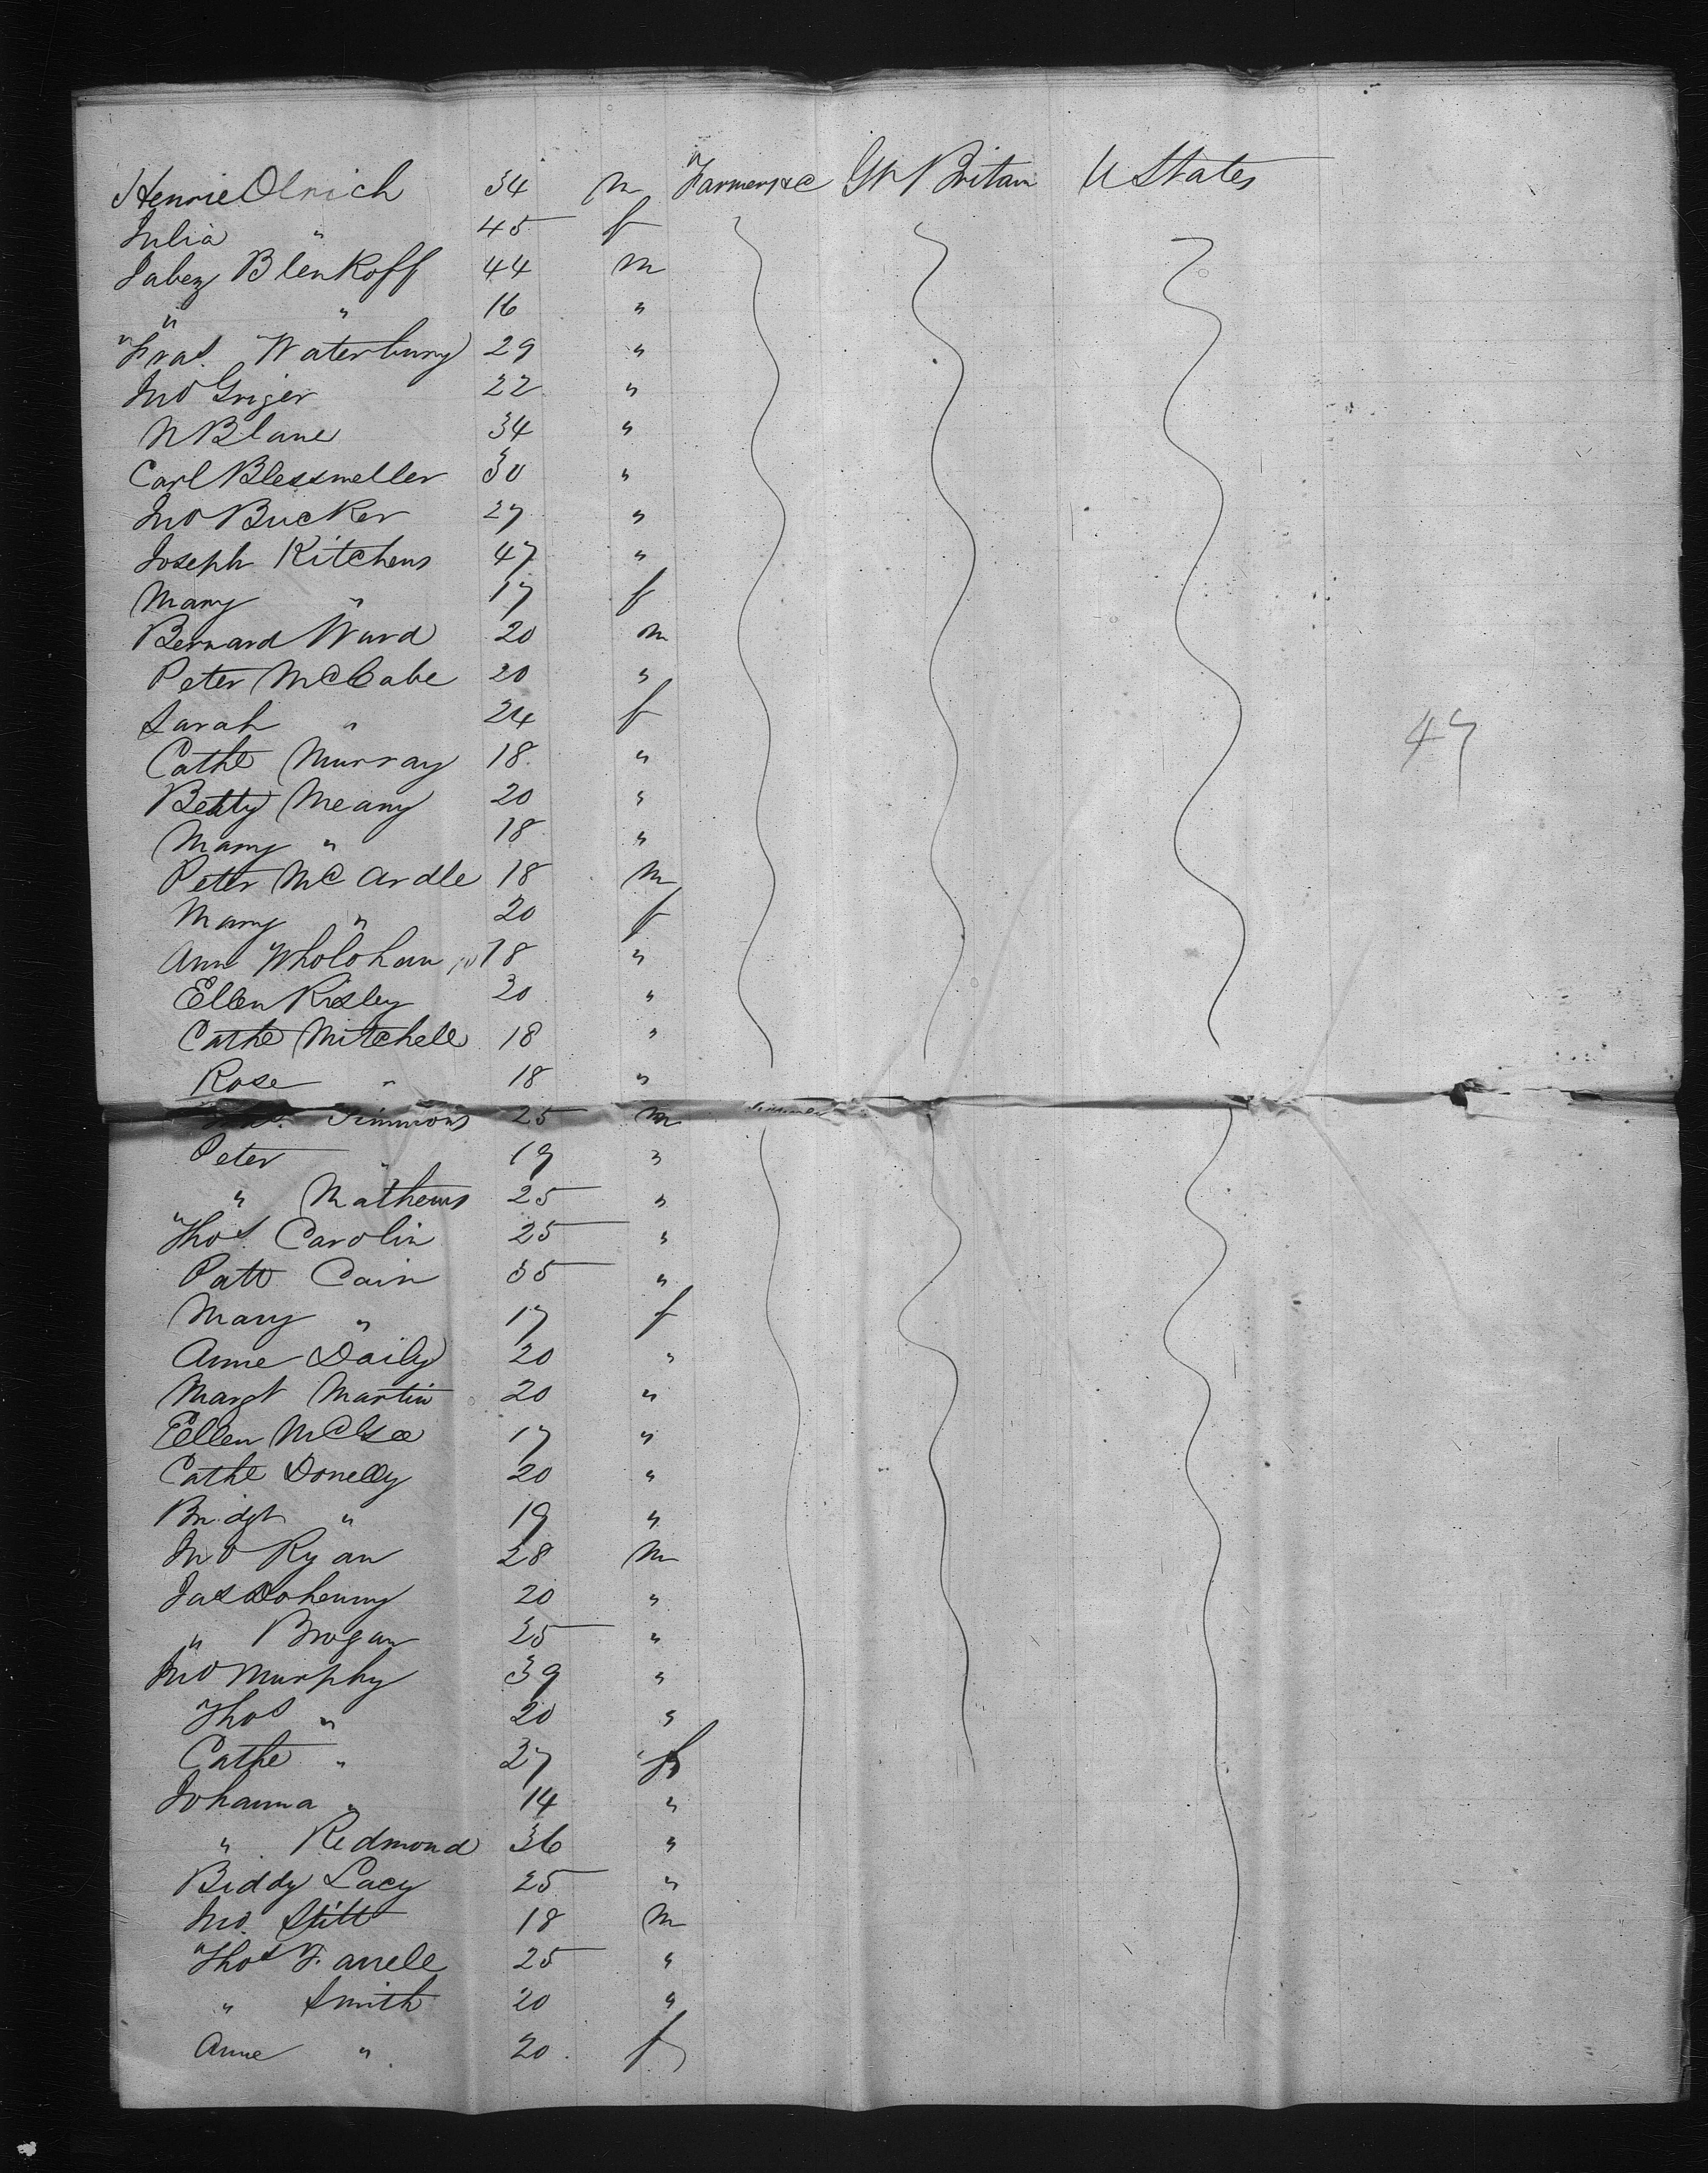 Henrie Olrich 34 m Farmers &c Gt Britain U States
Julia " 45 f
Jabez Blenkoff 44 m
" " 16 "
Fras. Waterbury 29 "
Jno Griger 22 "
N Blane 34 "
Carl Blessmeller 30 "
Jno Bucker 27 "
Joseph Kitchens 47 "
Mary " 17 f
Bernard Ward 20 m
Peter McCabe 20 "
Sarah " 24 f
Cathe Murray 18. "
Betty Meany 20 "
Mary " 18 "
Peter McArdle 18 m
Mary " 20 f
Ann Wholohan 18 "
Ellen Risley 20 "
Cathe Mitchell 18 "
Rose " 18 "
Simmons 25 m
Peter " 19 "
" Mathews 25 "
Thos. Carolin 25 "
Patt Cain 35 "
Mary " 17 f
Anne Daily 20 "
Margt Martin 20 "
Ellen 17 "
Cathe Donelly 20 "
Bridgt " 19 "
Jno Ryan 28 m
Jas Dohenny 20 "
" Brogan 25 "
Jno Murphy 39 "
Thos " 20 "
Cathe " 37 f
Johanna " 14 "
" Redmond 36 "
Biddy Lacy 25 "
Jno. Stitt 18 m
Thos Farrell 25 "
" Smith 20 "
Anne " 20. f
47